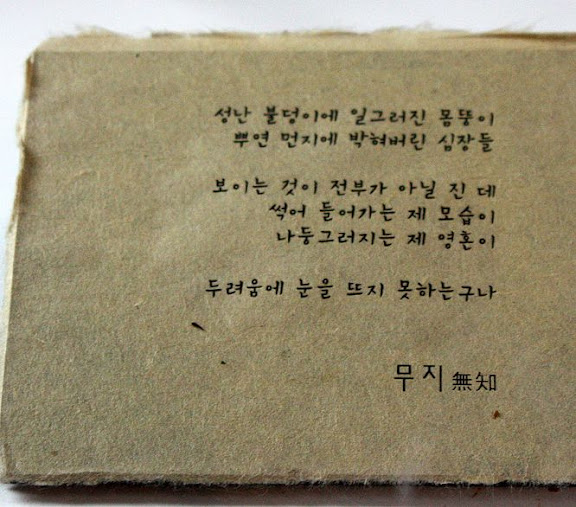 성난 불덩이에 일그러진 몸뚱이
뿌연 먼지에 박혀버린 심장들
보이는 것이 전부가 아닐 진 데
썩어 들어가는 제 모습이
나둥그러지는 제 영혼이
두려움에 눈을 뜨지 못하는구나
무지 無知